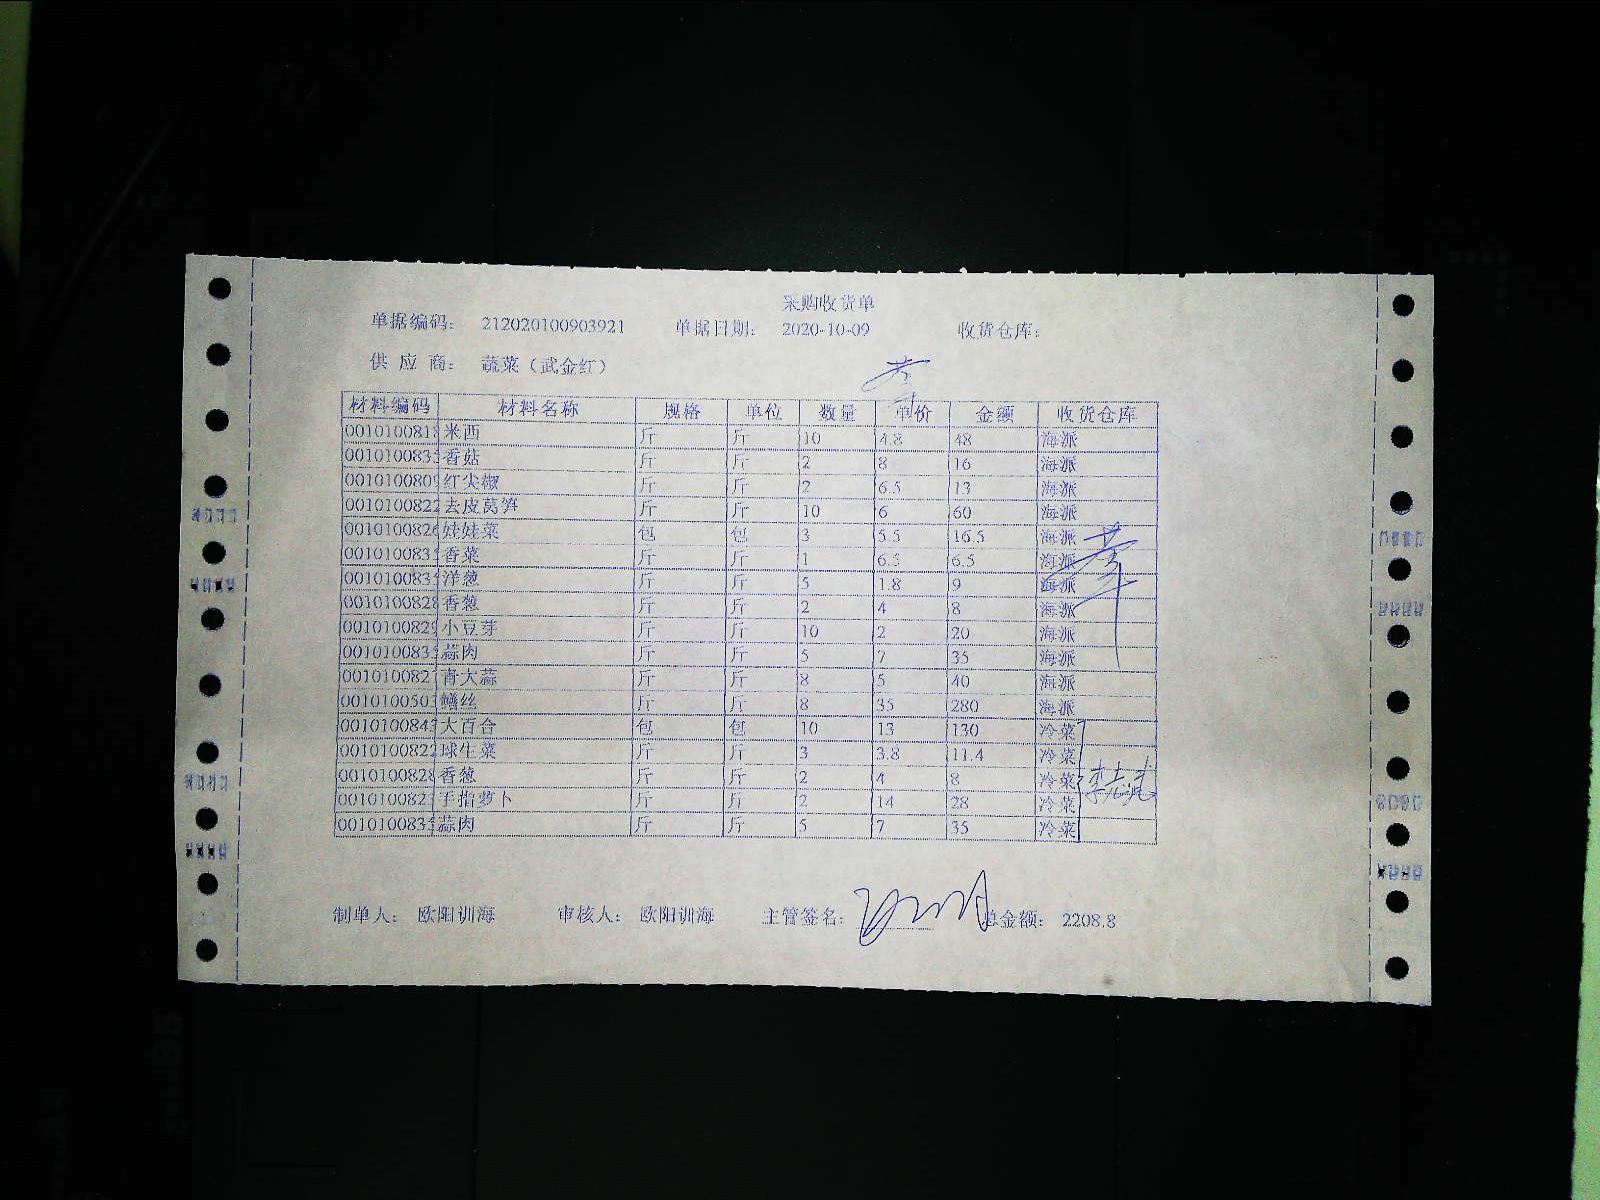 采购收货单
单据编码： 212020100903921 单据日期： 2020-10-09 收货仓库：
供 应 商： 蔬菜（武金红）
材料编码 材料名称 规格 单位 数量 单价 金额 收货仓库
0010100818 米西 斤 斤 10 4.8 48 海派
001010083 香菇 斤 斤 2 8 16 海派
001010080 红尖椒 斤 斤 2 6.5 13 海派
0010100822 去皮莴笋 斤 斤 10 6 60 海派
0010100826 娃娃菜 包 包 3 5.5 16.5 海派
001010083 香菜 斤 斤 1 6.5 6.5 海派
001010083 洋葱 斤 斤 5 1.8 9 海派
0010100828 香葱 斤 斤 2 4 8 海派
001010082 小豆芽 斤 斤 10 2 20 海派
001010083 蒜肉 斤 斤 5 7 35 海派
001010082 青大蒜 斤 斤 8 5 40 海派
001010050 鳝丝 斤 斤 8 35 280 海派
001010084 大百合 包 包 10 13 130 冷菜
0010100822 球生菜 斤 斤 3 3.8 11.4 冷菜
0010100828 香葱 斤 斤 2 4 8 冷菜
001010082 手指萝卜 斤 斤 2 14 28 冷菜
001010083 蒜肉 斤 斤 5 7 35 冷菜
制单人： 欧阳训海 审核人： 欧阳训海 主管签名： 总金额： 2208.8